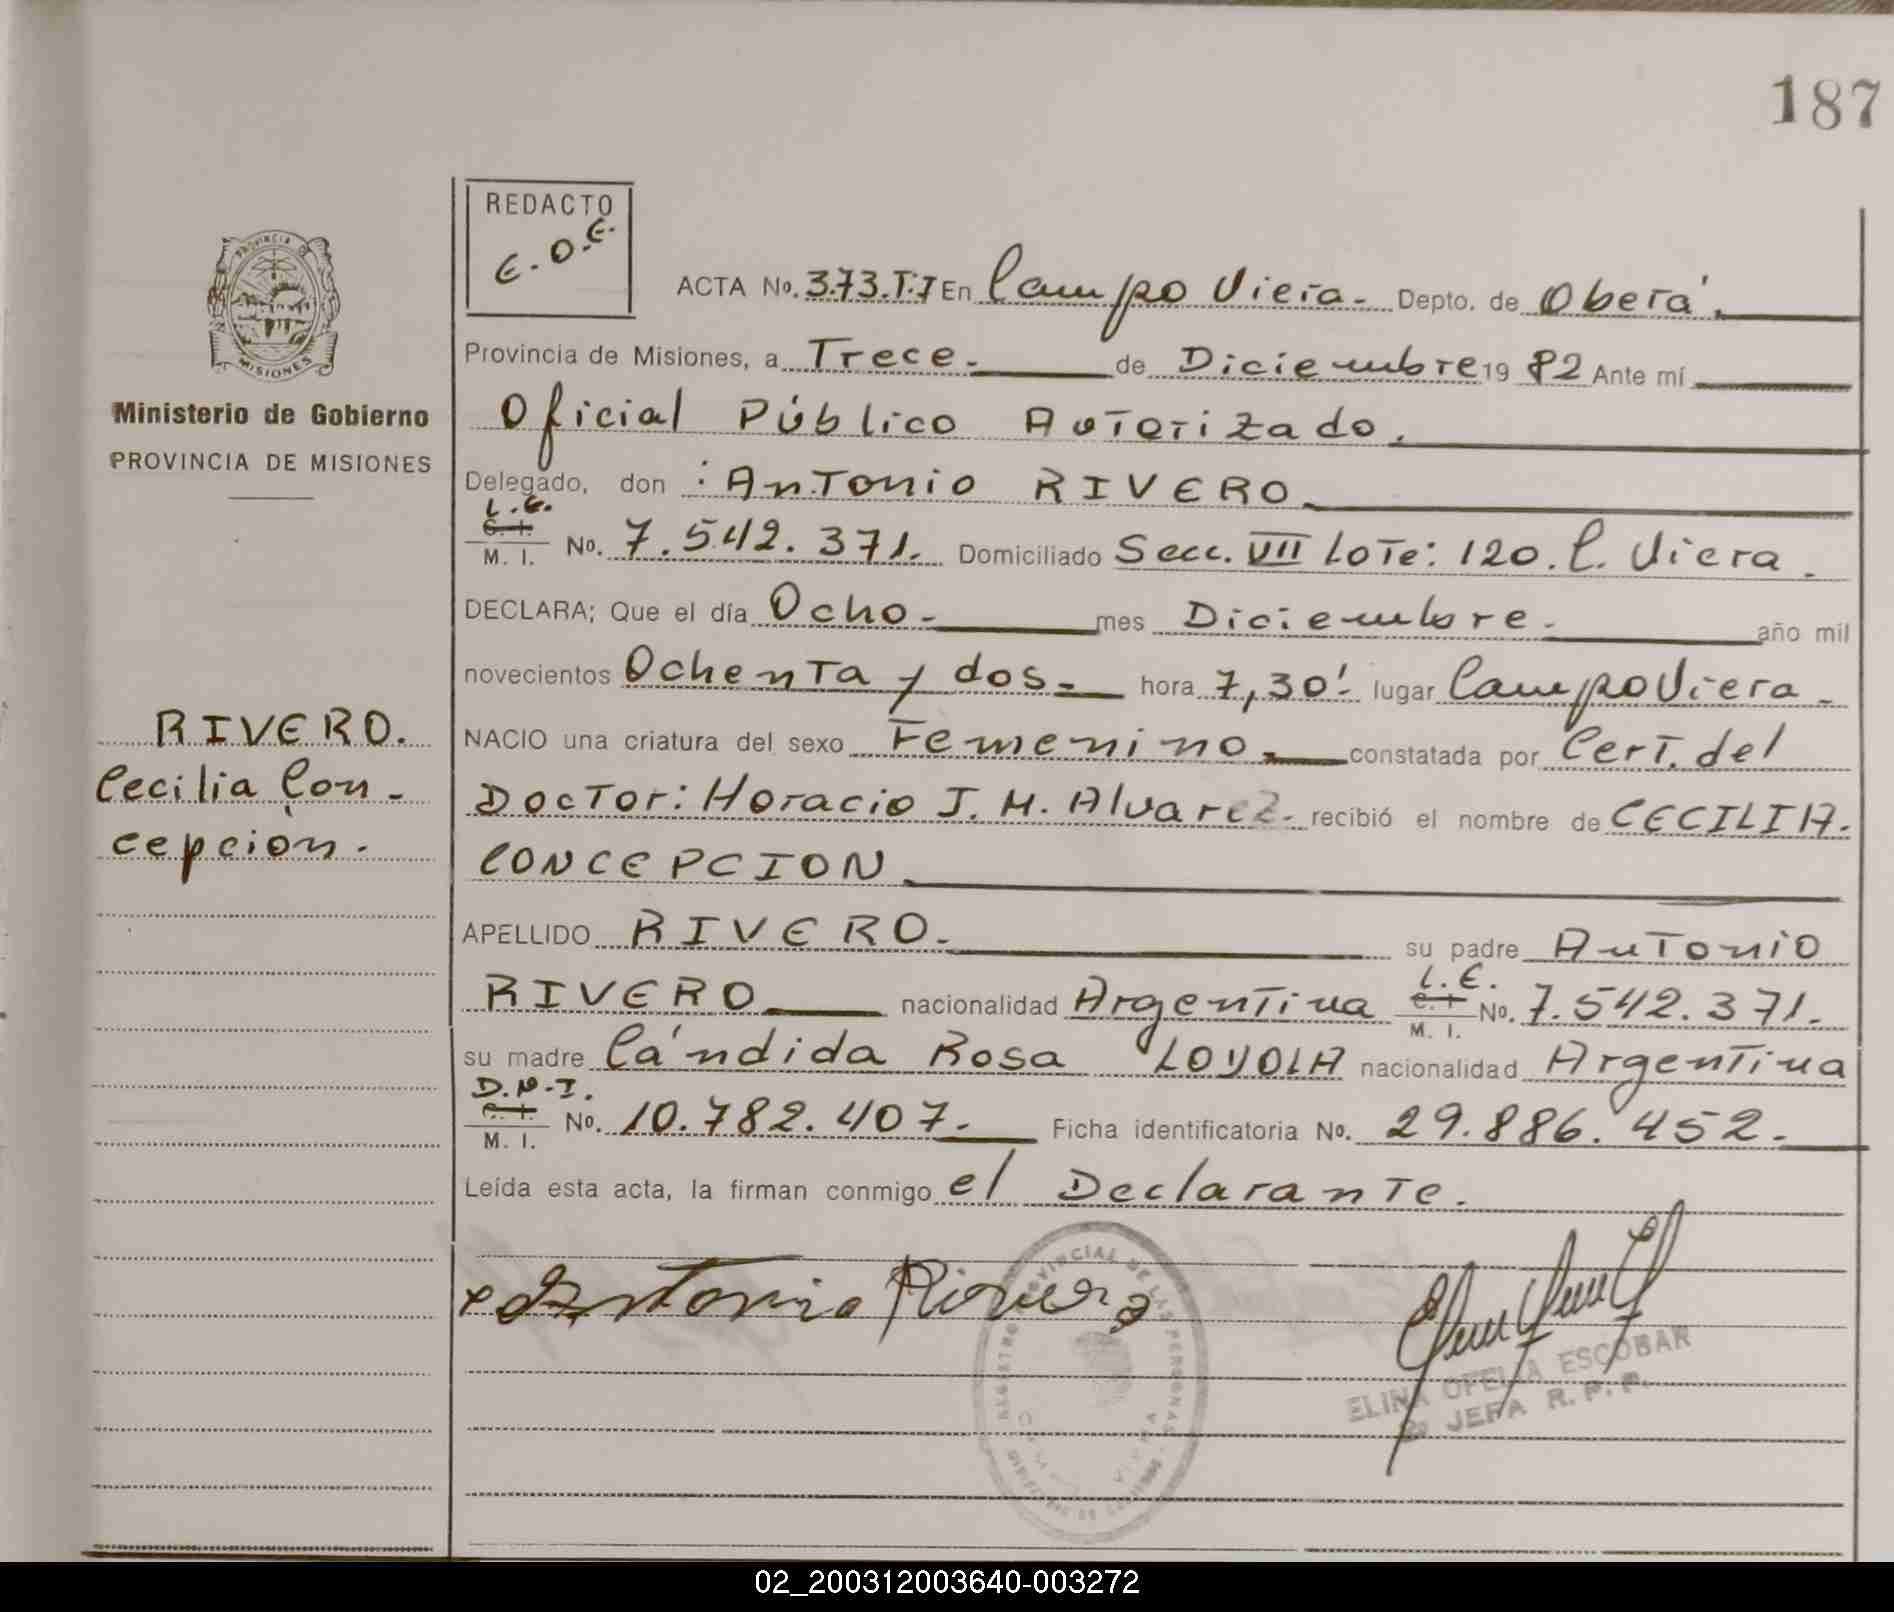 187
REDACTO
E.O.E.
ACTA No. 373.T.I En Campo Viera.- Depto. de Oberá.
Provincia de Misiones, a Trece.- de Diciembre 19 82 Ante mí
Oficial Público Autorizado.
Delegado, don : Antonio RIVERO
L.E.
C. I.
M. I. No. 7.542.371. Domiciliado Secc. VII Lote: 120. C. Viera.
DECLARA; Que el día Ocho.- mes Diciembre.- año mil
novecientos Ochenta y dos.- hora 7,30'.- lugar Campo Viera.-
NACIO una criatura del sexo Femenino.- constatada por Cert. del
Doctor: Horacio J. M. Alvarez.- recibió el nombre de CECILIA.
CONCEPCION
APELLIDO RIVERO.- su padre Antonio
RIVERO nacionalidad Argentina L.E.
C. I.
M. I. No. 7.542.371.
su madre Cándida Rosa LOYOLA nacionalidad Argentina
D.N.I.
C. I.
M. I. No. 10.782.407.- Ficha identificatoria No. 29.886.452.-
Leída esta acta, la firman conmigo el Declarante.
Antonio Rivero
ELINA OFELIA ESCOBAR
JEFA R. P. P.
PROVINCIA
MISIONES
Ministerio de Gobierno
PROVINCIA DE MISIONES
RIVERO.
Cecilia Con-
cepción.
REGISTRO PROVINCIAL DE LAS PERSONAS
02_200312003640-003272